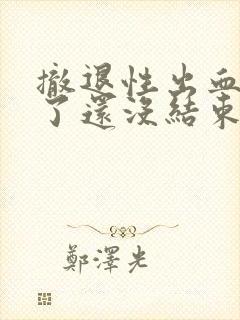 撤退性出血
了還沒結束
鄭澤光